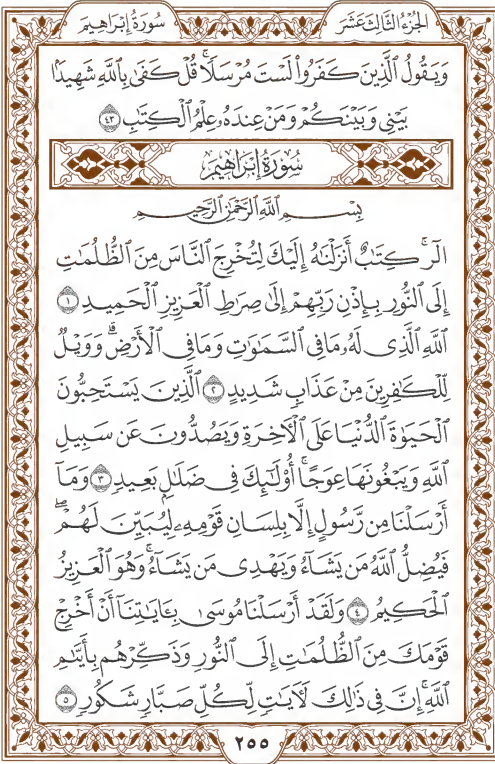 الجُزْءُ الثَّالِثَ عَشَرَ سُورَةُ إِبْرَاهِيمَ
وَيَقُولُ ٱلَّذِينَ كَفَرُواْ لَسْتَ مُرْسَلٗاۚ قُلْ كَفَىٰ بِٱللَّهِ شَهِيدَۢا
بَيْنِي وَبَيْنَكُمْ وَمَنْ عِندَهُۥ عِلْمُ ٱلْكِتَٰبِ ٤٣
سُورَةُ إِبْرَاهِيمَ
بِسْمِ ٱللَّهِ ٱلرَّحْمَٰنِ ٱلرَّحِيمِ
الٓرۚ كِتَٰبٌ أَنزَلْنَٰهُ إِلَيْكَ لِتُخْرِجَ ٱلنَّاسَ مِنَ ٱلظُّلُمَٰتِ
إِلَى ٱلنُّورِ بِإِذْنِ رَبِّهِمْ إِلَىٰ صِرَٰطِ ٱلْعَزِيزِ ٱلْحَمِيدِ ١
ٱللَّهِ ٱلَّذِي لَهُۥ مَا فِي ٱلسَّمَٰوَٰتِ وَمَا فِي ٱلْأَرْضِۗ وَوَيْلٞ
لِّلْكَٰفِرِينَ مِنْ عَذَابٖ شَدِيدٍ ٢ ٱلَّذِينَ يَسْتَحِبُّونَ
ٱلْحَيَوٰةَ ٱلدُّنْيَا عَلَى ٱلْأٓخِرَةِ وَيَصُدُّونَ عَن سَبِيلِ
ٱللَّهِ وَيَبْغُونَهَا عِوَجًاۚ أُوْلَٰٓئِكَ فِي ضَلَٰلِۭ بَعِيدٖ ٣ وَمَآ
أَرْسَلْنَا مِن رَّسُولٍ إِلَّا بِلِسَانِ قَوْمِهِۦ لِيُبَيِّنَ لَهُمْۖ
فَيُضِلُّ ٱللَّهُ مَن يَشَآءُ وَيَهْدِي مَن يَشَآءُۚ وَهُوَ ٱلْعَزِيزُ
ٱلْحَكِيمُ ٤ وَلَقَدْ أَرْسَلْنَا مُوسَىٰ بِـَٔايَٰتِنَآ أَنْ أَخْرِجْ
قَوْمَكَ مِنَ ٱلظُّلُمَٰتِ إِلَى ٱلنُّورِ وَذَكِّرْهُم بِأَيَّىٰمِ
ٱللَّهِۚ إِنَّ فِي ذَٰلِكَ لَأٓيَٰتٖ لِّكُلِّ صَبَّارٖ شَكُورٖ ٥
٢٥٥